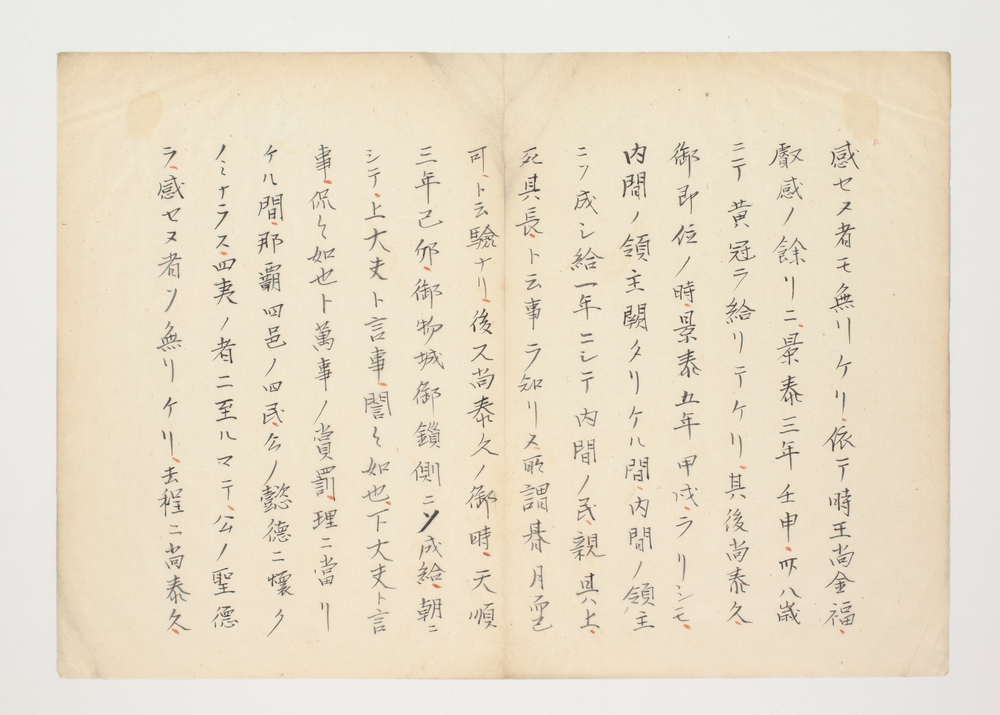 感セヌ者モ無リケリ、依テ時王尚金福、
叡感ノ餘リニ、景泰三年壬申、卅八歳
ニテ黄冠ヲ給リテケリ、其後尚泰久、
御即位ノ時、景泰五年甲戌、ヲリシモ、
内間ノ領主闕タリケル間、内間ノ領主
ニソ成シ給一年ニシテ内間ノ民、親其上、
死其長、ト云事ヲ知リヌ、所謂朞月而已
可、ト云驗ナリ、後ス尚泰久ノ御時、天順
三年己卯、御物城御鎖側ニソ成給、朝ニ
シテ、上大夫ト言事、誾〻如也、下大夫ト言
事、侃〻如也ト萬事ノ賞罰、理ニ當リ
ケル間、那覇四邑ノ四民、公ノ懿德ニ懷ク
ノミナラス、四夷ノ者ニ至ルマテ、公ノ聖德
ヲ、感セヌ者ソ無リケリ、去程ニ尚泰久、